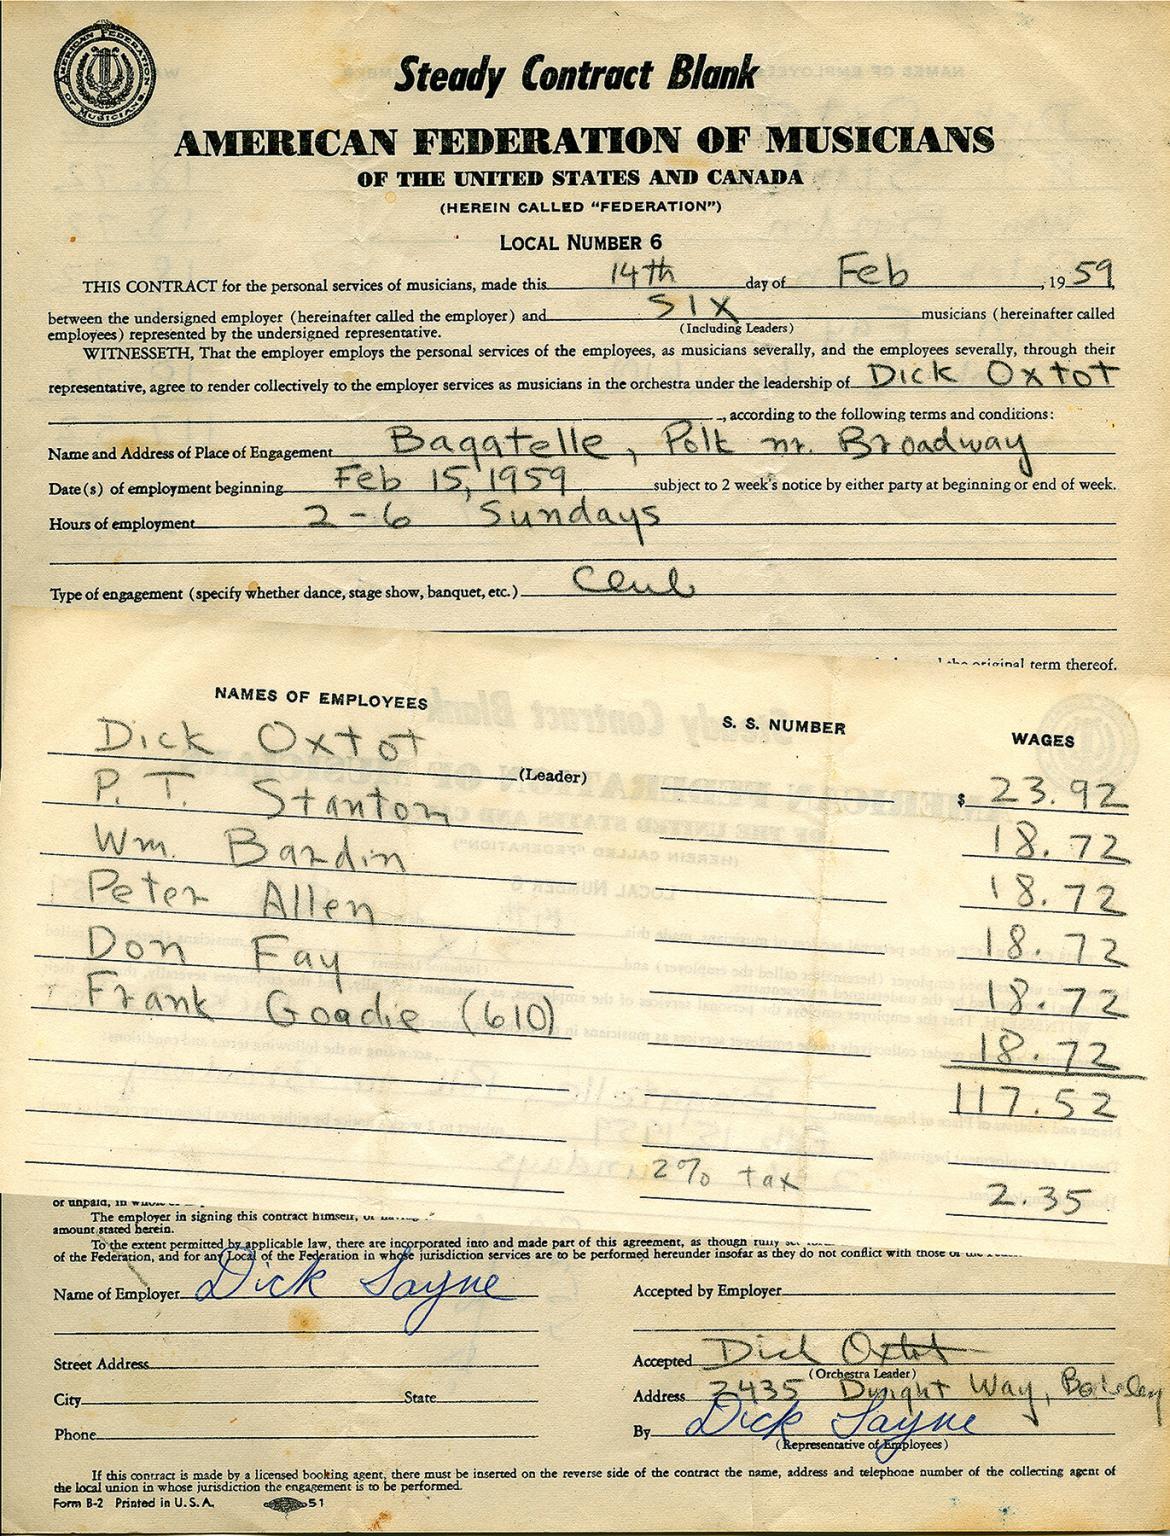 AMERICAN FEDERATION OF MUSICIANS
Steady Contract Blank
AMERICAN FEDERATION OF MUSICIANS
OF THE UNITED STATES AND CANADA
(HEREIN CALLED "FEDERATION")
LOCAL NUMBER 6
THIS CONTRACT for the personal services of musicians, made this 14th day of Feb, 1959
between the undersigned employer (hereinafter called the employer) and SIX musicians (hereinafter called
(Including Leaders)
employees) represented by the undersigned representative.
WITNESSETH, That the employer employs the personal services of the employees, as musicians severally, and the employees severally, through their
representative, agree to render collectively to the employer services as musicians in the orchestra under the leadership of Dick Oxtot
, according to the following terms and conditions:
Name and Address of Place of Engagement Bagatelle, Polk nr. Broadway
Date(s) of employment beginning Feb 15, 1959 subject to 2 week's notice by either party at beginning or end of week.
Hours of employment 2-6 Sundays
Type of engagement (specify whether dance, stage show, banquet, etc.) Club
the original term thereof.
NAMES OF EMPLOYEES S. S. NUMBER WAGES
Dick Oxtot (Leader) $23.92
P. T. Stanton 18.72
Wm. Bardin 18.72
Peter Allen 18.72
Don Fay 18.72
Frank Goadie (610) 18.72
117.52
2% tax 2.35
or unpaid, in whole or
The employer in signing this contract himself, or having
amount stated herein.
To the extent permitted by applicable law, there are incorporated into and made part of this agreement, as though fully set
of the Federation, and for any Local of the Federation in whose jurisdiction services are to be performed hereunder insofar as they do not conflict with those of the
Name of Employer Dick Sayne Accepted by Employer
Street Address Accepted Dick Oxtot
(Orchestra Leader)
City State Address 2435 Dwight Way, Berkeley
Phone By Dick Sayne
(Representative of Employees)
If this contract is made by a licensed booking agent, there must be inserted on the reverse side of the contract the name, address and telephone number of the collecting agent of
the local union in whose jurisdiction the engagement is to be performed.
Form B-2 Printed in U.S.A. 51